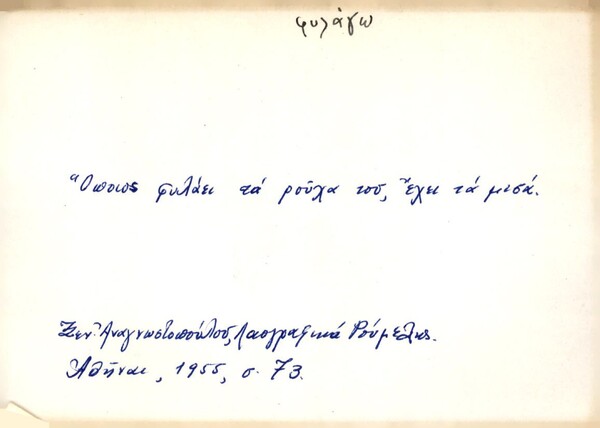 φυλάγω
Ὅποιος φυλάει τά ροῦχα του, ἔχει τά μισά.
Ξεν. Ἀναγνωστοπούλου, Λαογραφικά Ρούμελης.
Ἀθῆναι, 1955, σ. 73.